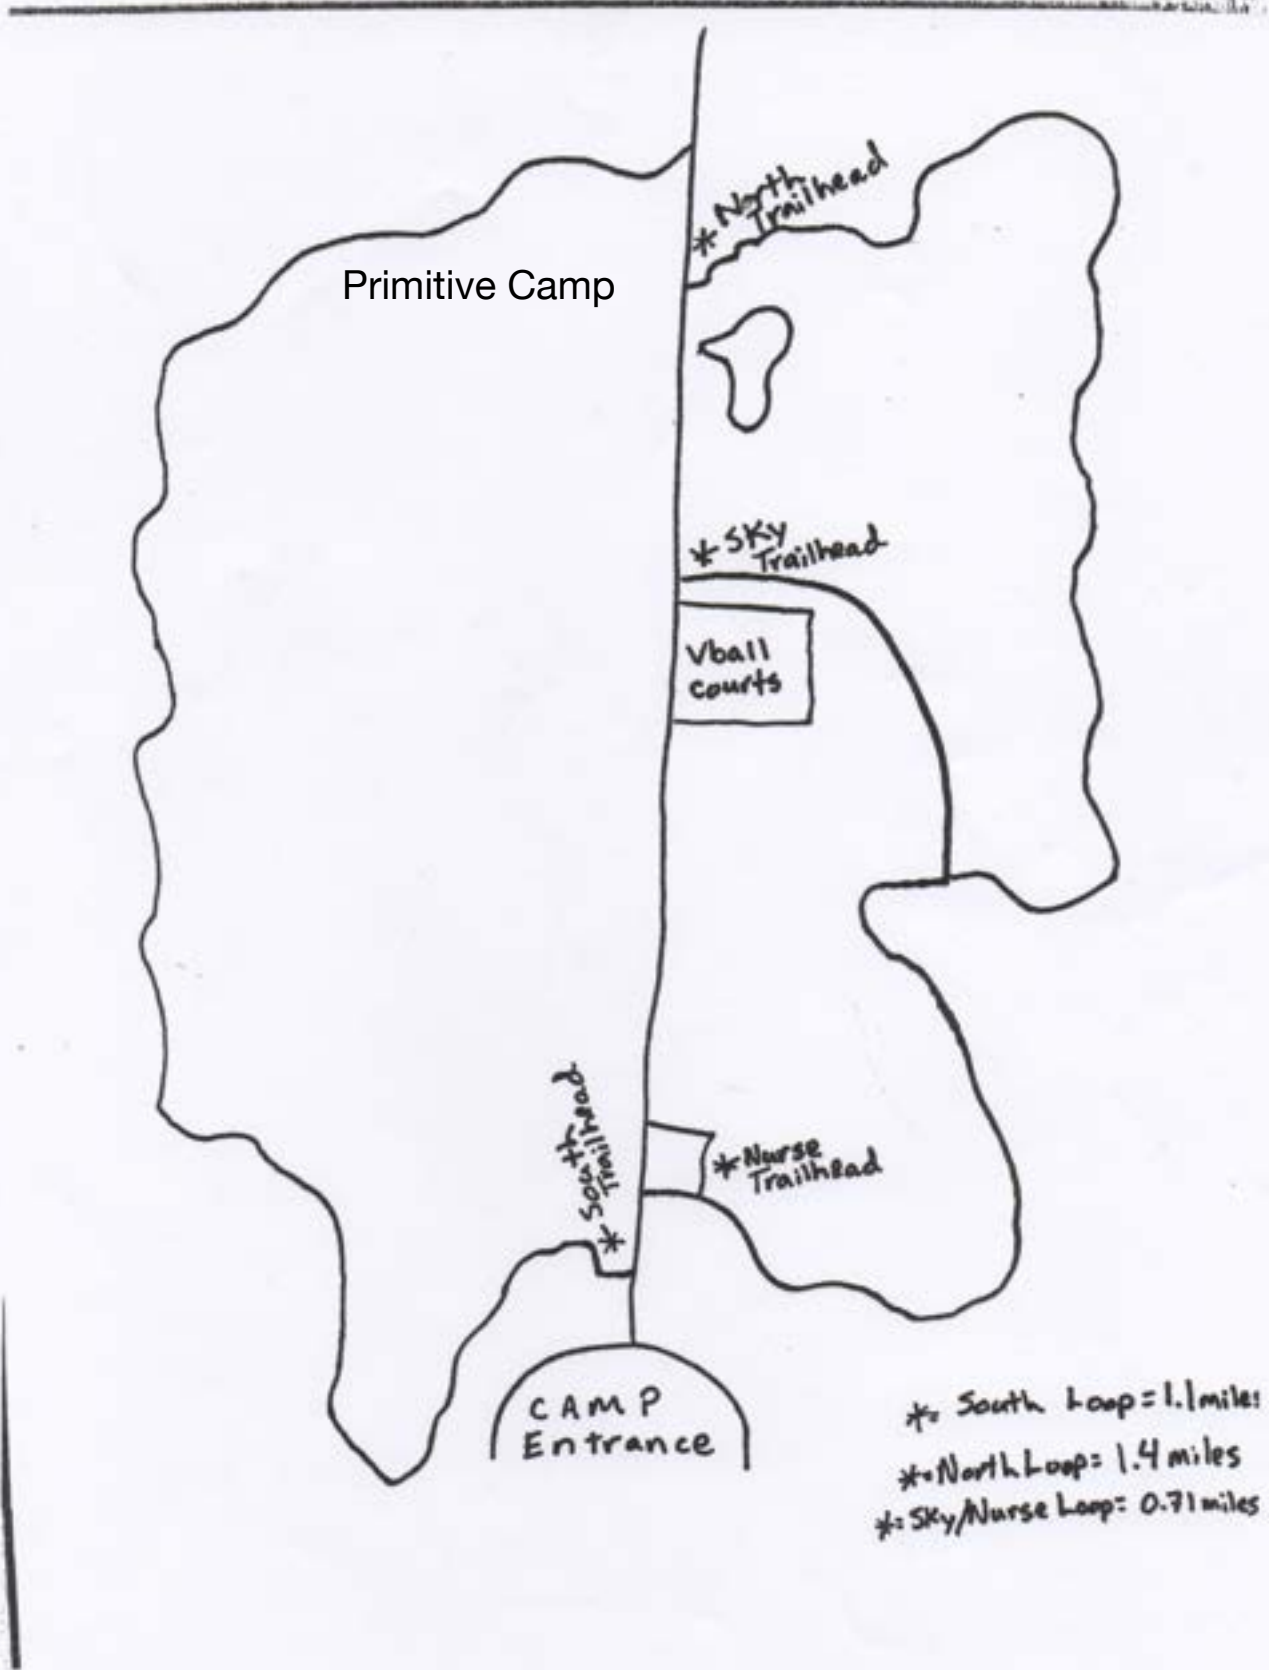 North
Trailhead
Primitive Camp
SKy
Trailhead
Vball
courts
South
Trailhead
Nurse
Trailhead
CAMP
Entrance
*= South Loop = 1.1 miles
*= North Loop = 1.4 miles
*= SKy/Nurse Loop = 0.71 miles